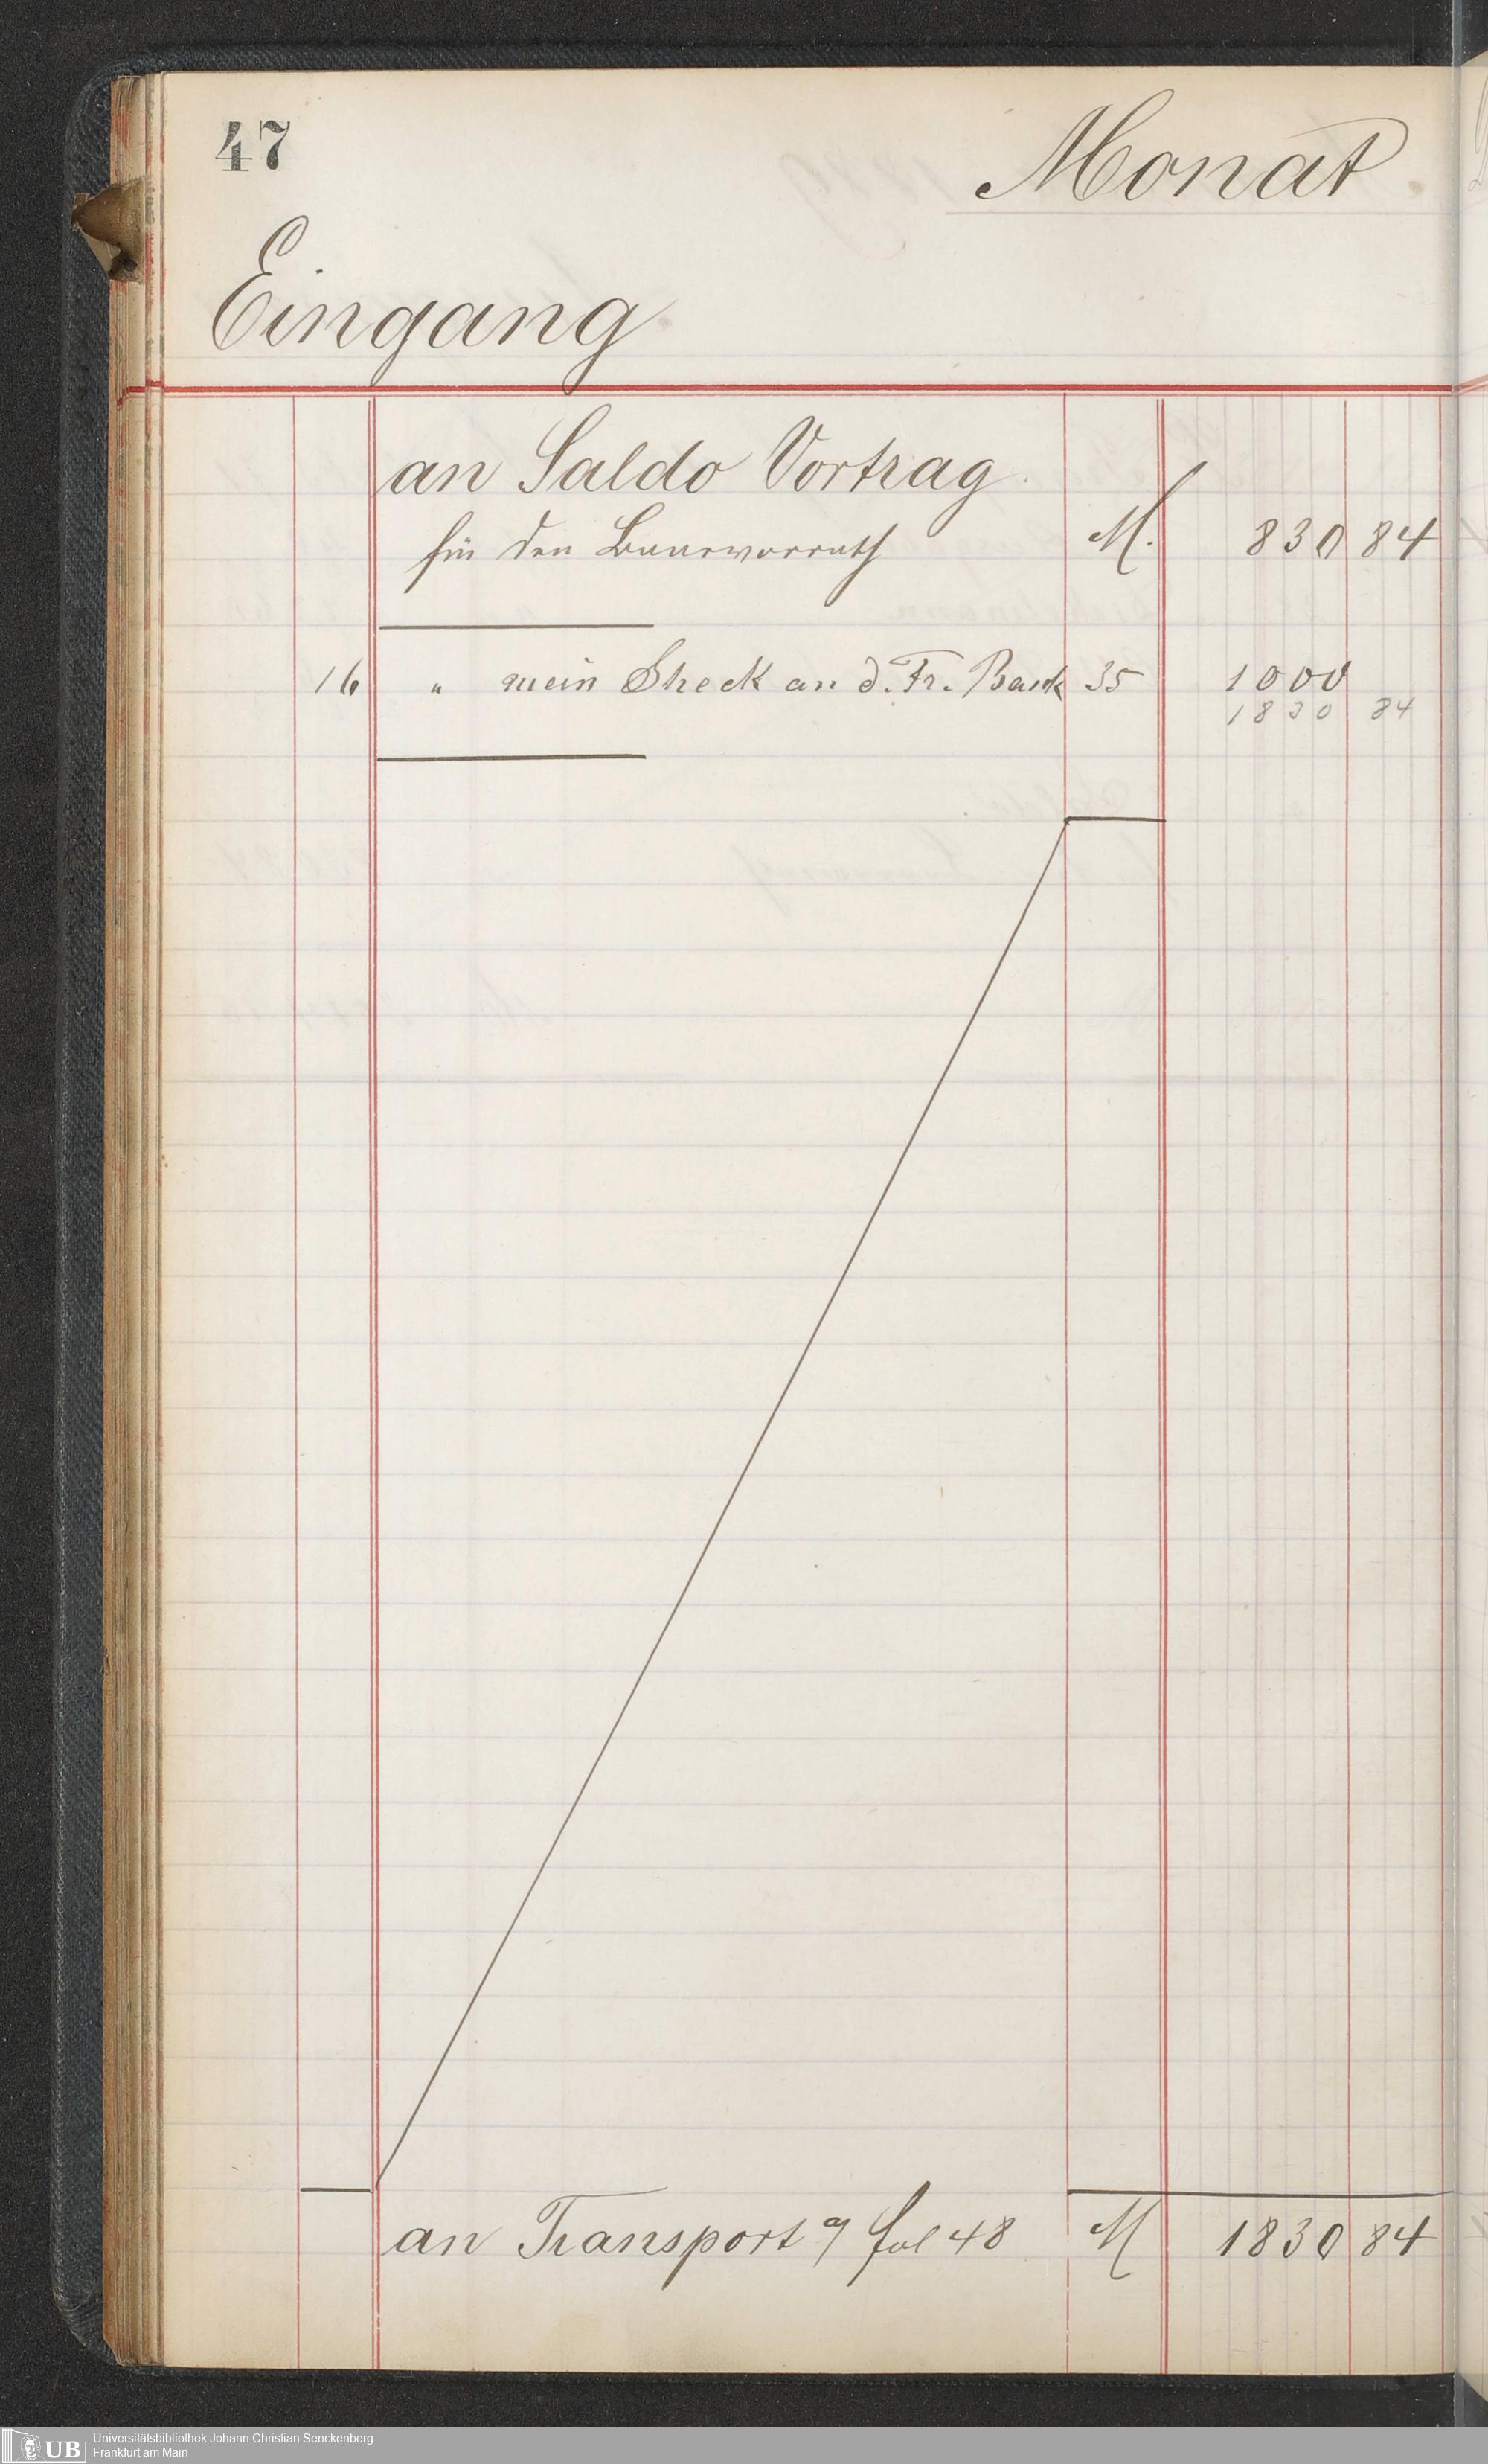 47
Monat
Eingang
an Saldo Vortrag.
für den Baarvorrath M. 830 84
16 " mein Sheck an d. Fr. Bank 35 1000
1830 84
an Transport a/ fol 48 M 1830 84
UB Universitätsbibliothek Johann Christian Senckenberg
Frankfurt am Main